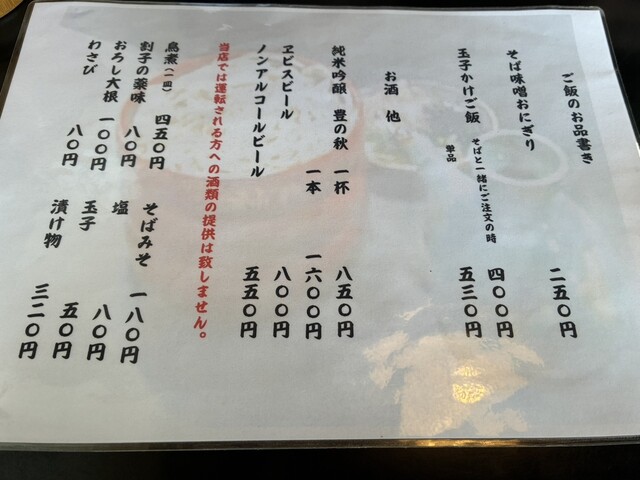 ご飯のお品書き
そば味噌おにぎり 二五〇円
玉子かけご飯 そばと一緒にご注文の時 四〇〇円
単品 五三〇円
お酒 他
純米吟醸 豊の秋 一杯 八五〇円
一本 一六〇〇円
ヱビスビール 八〇〇円
ノンアルコールビール 五五〇円
当店では運転される方への酒類の提供は致しません。
鳥煮(一皿) 四五〇円
割子の薬味 八〇円
おろし大根 一〇〇円
わさび 八〇円
そばみそ 一八〇円
塩 八〇円
玉子 五〇円
漬け物 三二〇円